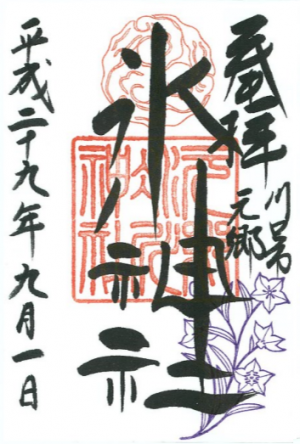 奉拝
川口市
元郷
氷川神社
平成二十九年九月一日